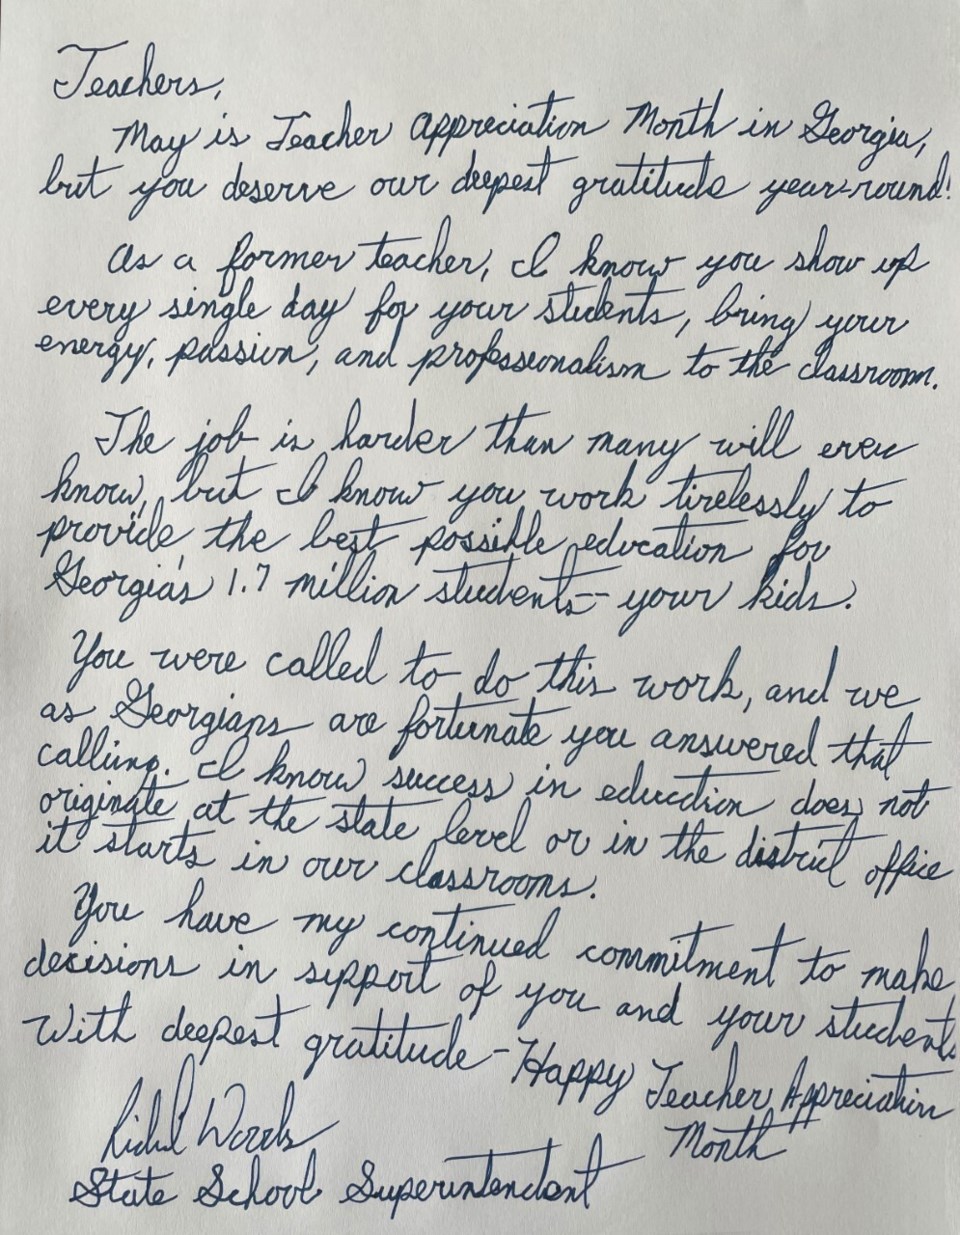 Teachers,
May is Teacher Appreciation Month in Georgia,
but you deserve our deepest gratitude year-round!
As a former teacher, I know you show up
every single day for your students, bring your
energy, passion, and professionalism to the classroom.
The job is harder than many will ever
know, but I know you work tirelessly to
provide the best possible education for
Georgia's 1.7 million students - your kids.
You were called to do this work, and we
as Georgians are fortunate you answered that
calling. I know success in education does not
originate at the state level or in the district office
it starts in our classrooms.
You have my continued commitment to make
decisions in support of you and your students
With deepest gratitude - Happy Teacher Appreciation
Month
Richard Woods
State School Superintendent